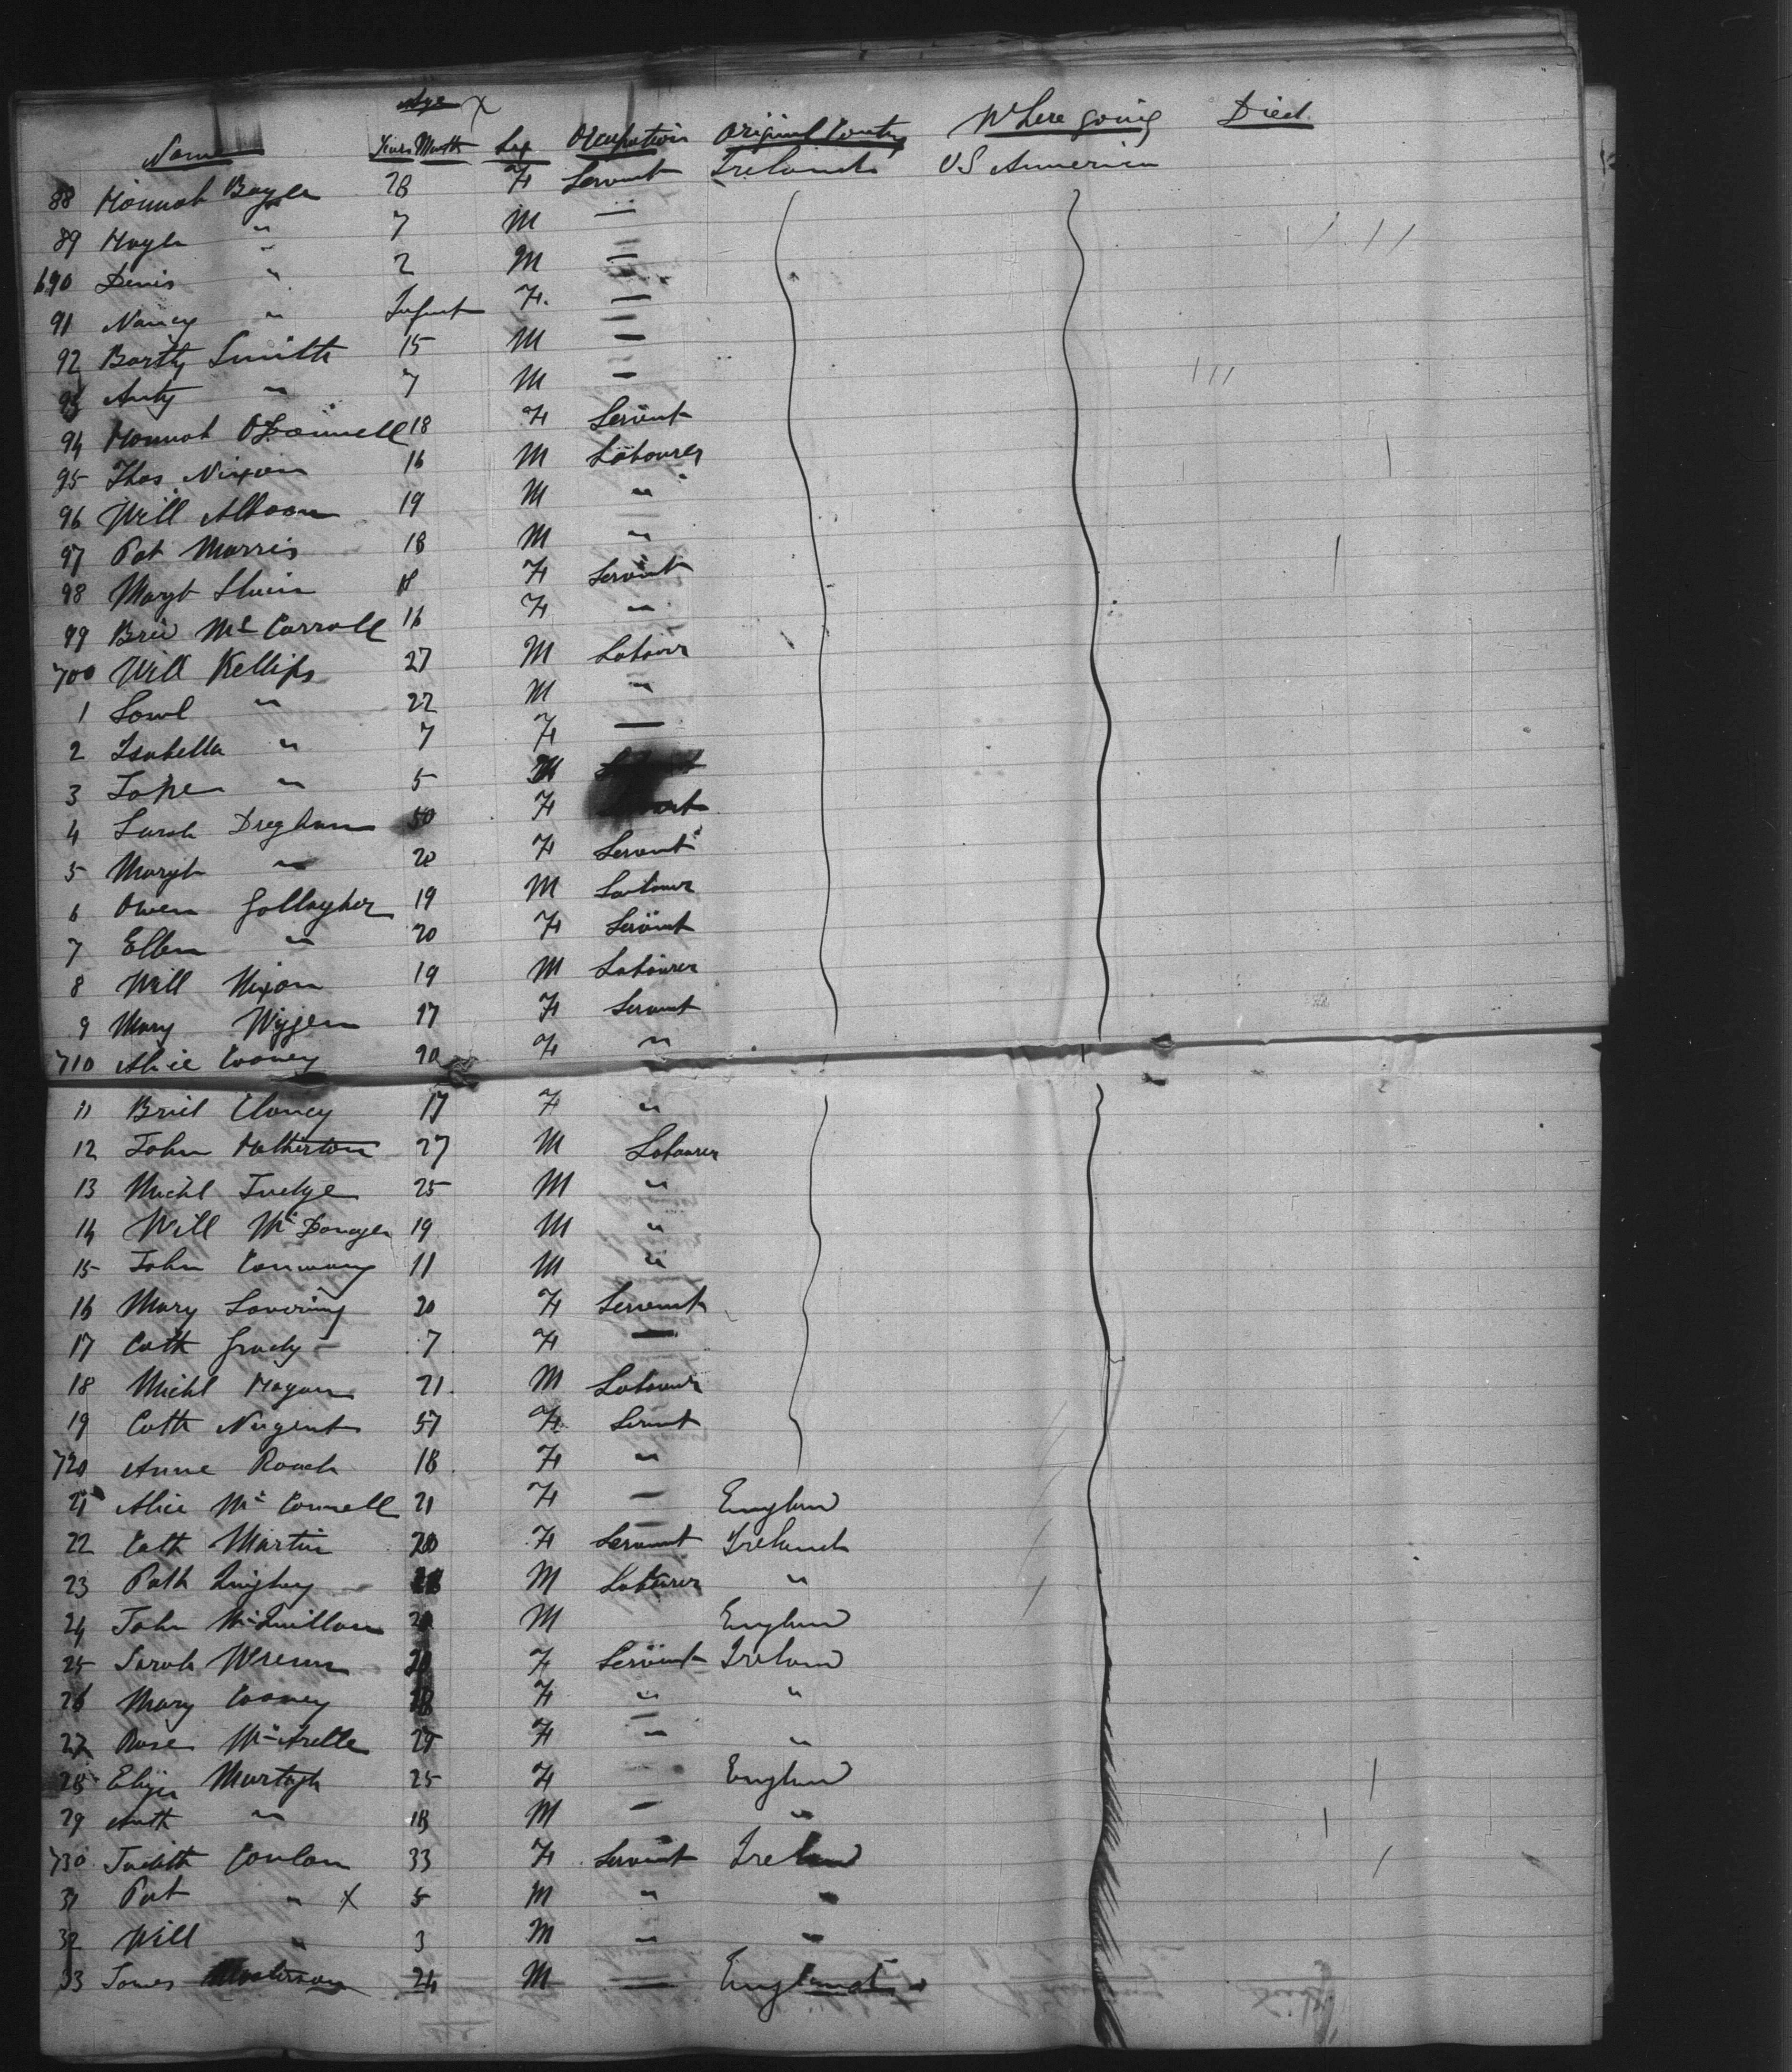 Age X
Name Years Month Sex Occupation Original Contry Where going Died
88 Hannah Boyle 28 F Servant Ireland US Amnerica
89 Hugh " 7 M —
690 Denis " 2 M —
91 Nancy " Infant F. —
92 Barthy Smith 15 M —
93 Anty " 7 M —
94 Hannah O'Donnell 18 F Servant
95 Thos. Nixon 16 M Labourer
96 Will 19 M "
97 Pat Morris 18 M "
98 Margt 18 F Servant
99 Brid Mc Carroll 16 F "
700 Will Kellips 27 M Labour
1 " 22 M "
2 Isabella " 7 F —
3 " 5 M
4 Sarah 50 F
5 Margt " 20 F Servant
6 Owen Gallagher 19 M Labourer
7 Ellen " 20 F Servant
8 Will Nixon 19 M Labourer
9 Mary 17 F Servant
710 Alice Cooney 20 F "
11 Brid Clancy 17 F "
12 John 27 M Labourer
13 Michl Judge 25 M "
14 Will Mc 19 M "
15 John Conway 11 M "
16 Mary 20 F Servant
17 Cath Grady 7 F —
18 Michl Hagan 21 M Labourer
19 Cath Nugent 57 F Servnt
720 Anne Roach 18 F "
21 Alice Mc Connell 21 F — England
22 Cath Martin 20 F Servant Ireland
23 Path Quigley M Labourer "
24 John McQuillan 20 M England
25 Sarah Wrenn 20 F Servant Ireland
26 Mary Cooney F " "
27 Rose F " "
28 Eliza Murtagh 25 F — England
29 Anth " 18 M — "
730 Judith Conlan 33 F Servant Ireland
31 Pat " X 5 M " "
32 Will " 3 M " "
33 James 24 M — England